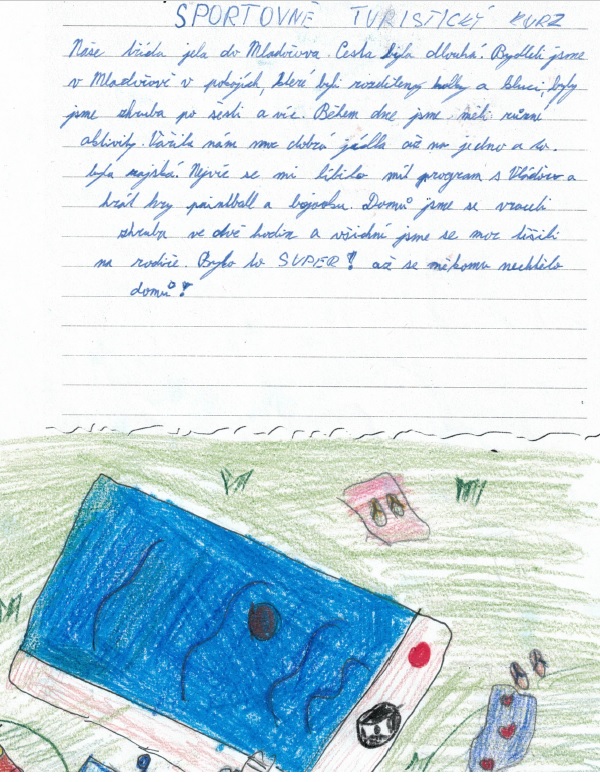 SPORTOVNĚ TURISTICKÝ KURZ
Naše třída jela do Mladočova. Cesta byla dlouhá. Bydleli jsme
v Mladočově v pokojích, které byli rozděleny holky a kluci, byly
jsme zhruba po šesti a víc. Během dne jsme měli různé
aktivity. Vařila nám moc dobrá jídla až na jedno a to.
byla rajská. Nejvíc se mi líbilo mít program s a
hrát hry paintball a bojovku. Domů jsme se vraceli
zhruba ve dvě hodin a všichni jsme se moc těšili
na rodiče. Bylo to SUPER! až se někomu nechtělo
domů!